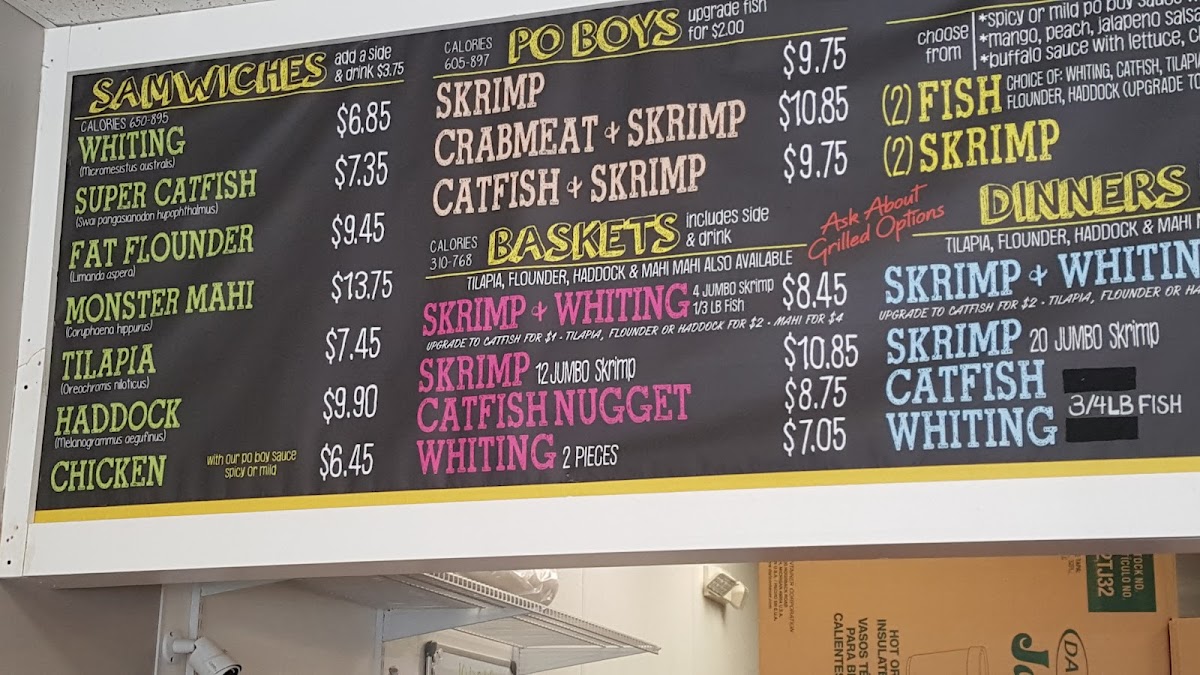 SAMWICHES add a side & drink $3.75
CALORIES 650-895
WHITING $6.85
(Micromesistius australis)
SUPER CATFISH $7.35
(Swai pangasianodon hypophthalmus)
FAT FLOUNDER $9.45
(Limanda aspera)
MONSTER MAHI $13.75
(Coryphaena hippurus)
TILAPIA $7.45
(Oreochromis niloticus)
HADDOCK $9.90
(Melanogrammus aeglfinus)
CHICKEN with our po boy sauce spicy or mild $6.45
CALORIES 605-897 PO BOYS upgrade fish for $2.00
SKRIMP $9.75
CRABMEAT & SKRIMP $10.85
CATFISH & SKRIMP $9.75
CALORIES 310-768 BASKETS includes side & drink
Ask About Grilled Options
TILAPIA, FLOUNDER, HADDOCK & MAHI MAHI ALSO AVAILABLE
SKRIMP & WHITING 4 JUMBO skrimp 1/3 LB Fish $8.45
UPGRADE TO CATFISH FOR $1 - TILAPIA, FLOUNDER OR HADDOCK FOR $2 - MAHI FOR $4
SKRIMP 12 JUMBO skrimp $10.85
CATFISH NUGGET $8.75
WHITING 2 PIECES $7.05
choose from
*spicy or mild po boy sauce
*mango, peach, jalapeno
*buffalo sauce with lettuce,
(2) FISH CHOICE OF: WHITING, CATFISH,
FLOUNDER, HADDOCK (UPGRADE
(2) SKRIMP
DINNERS
TILAPIA, FLOUNDER, HADDOCK & MAHI
SKRIMP & WHITIN
UPGRADE TO CATFISH FOR $2 - TILAPIA, FLOUNDER OR
SKRIMP 20 JUMBO skrimp
CATFISH
3/4LB FISH
WHITING
HOT OR
INSULATE
VASOS TÉ
PARA BE
CALIENTES
DA
J
2TJ32